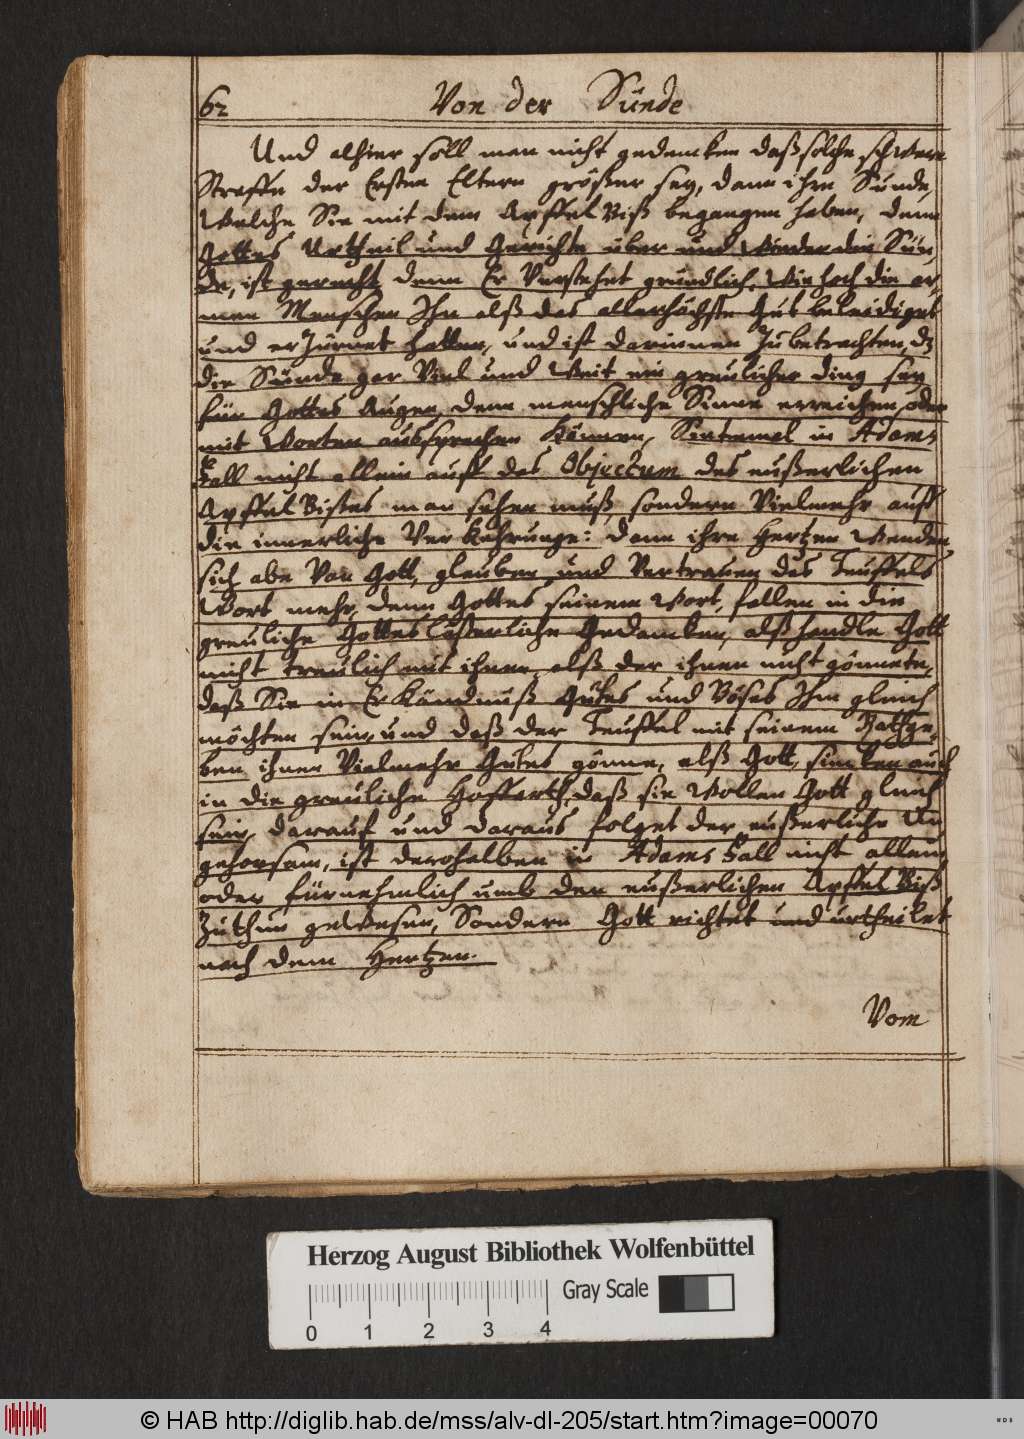 62 Von der Sünde
Und alhier soll man nicht gedencken daß solche schwere
Straffe der Ersten Eltern größer sey, dann ihre Sünde,
Welche Sie mit dem Apffel Biß begangen haben, denn
Gottes Urtheil und Gerichte über und wieder die Sün,
de, ist gerecht, denn Er Verstehet gründlich, Wie hoch die ar,
men Menschen Ihn alß das allerhöchste Gut beleidiget
und erzürnet hatten, und ist darinnen Zu betrachten, dz
die Sünde gar Viel und Weit ein greulicher ding sey
für Gottes Augen, denn menschliche Sinne erreichen, oder
mit Worten aussprechen Können, Sintemal in Adams
Fall nicht allein auff das Objectum des eußerlichen
Apffel Bißes man sehen muß, sondern Vielmehr auff
die innerliche VerKehrunge: dann ihre Hertzen Wenden
sich abe Von Gott, glauben und Vertrauen des Teuffels
Wort mehr, denn Gottes seinem Wort, fallen in die
greuliche Gotteslästerliche Gedancken, alß handle Gott
nicht treulich mit ihnen, alß der ihnen nicht gönnete,
daß Sie in ErKändnüß Gutes und Böses Ihm gleich
möchten sein, und daß der Teuffel mit seinem Rathge,
ben ihnen Vielmehr Gutes gönne, alß Gott, sincken auch
in die greuliche Hoffarth, daß sie Wollen Gott gleich
sein, darauf und daraus folget der eußerliche Un
gehorsam, ist derohalben in Adams Fall nicht allein
oder fürnehmlich umb den eußerlichen Apffel Biß
Zuthun geWesen, Sondern Gott richtet und urtheilet
nach dem Hertzen.
Vom
Herzog August Bibliothek Wolfenbüttel
Gray Scale
0 1 2 3 4
© HAB http://diglib.hab.de/mss/alv-dl-205/start.htm?image=00070